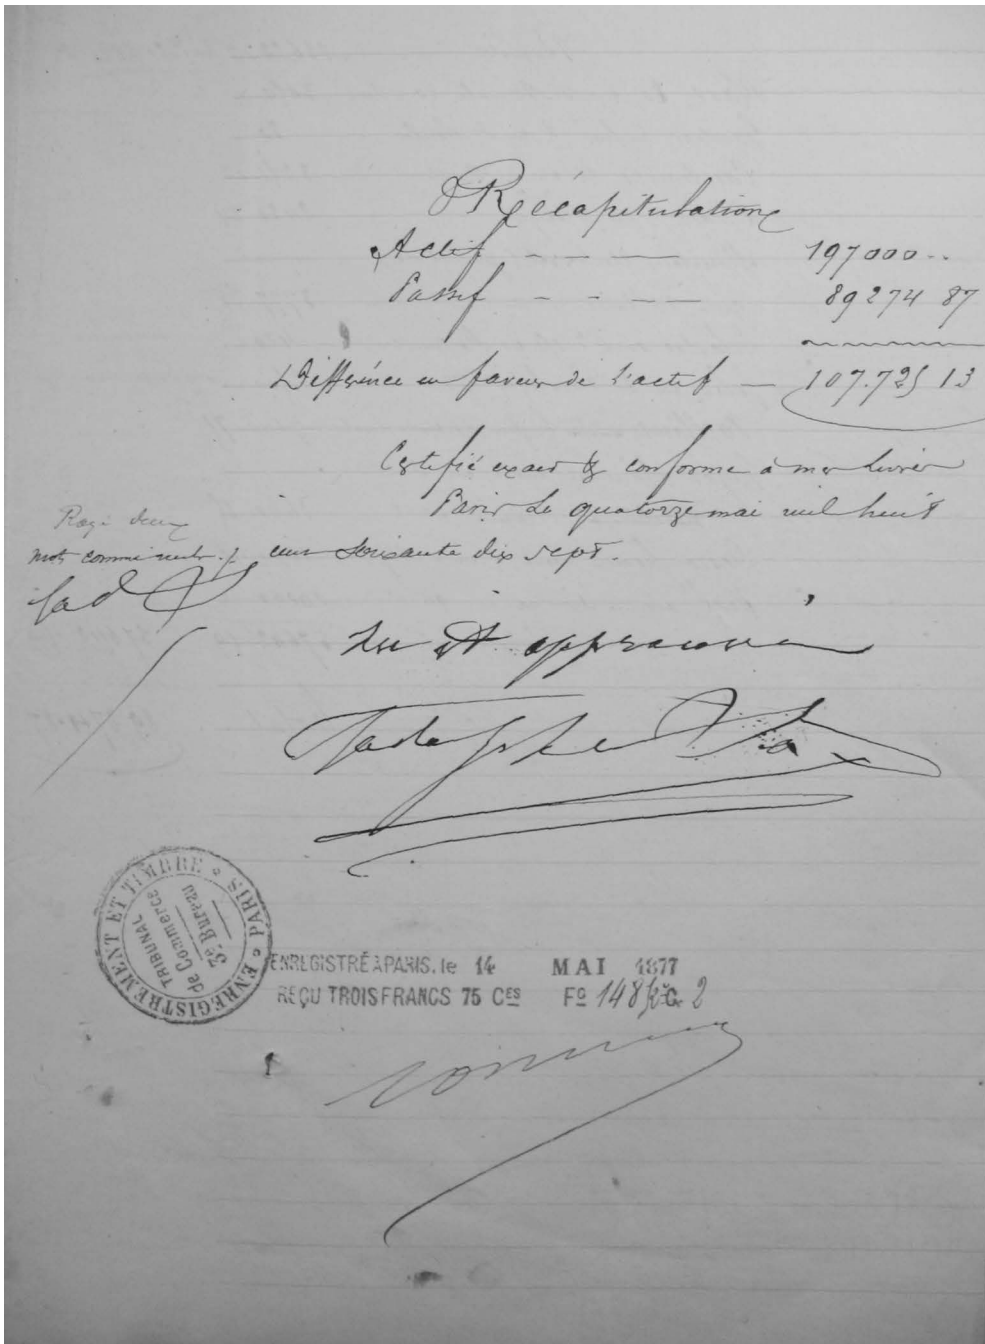 Récapitulation
Actif - - — 197000 ..
Passif - - - — 89274 87
Différence en faveur de l'actif — 107.725 13
Certifié exact & conforme à mes livres
Paris le quatorze mai mil huit
cent soixante dix sept.
Rayé deux
mots comme nuls
Lu et approuvé
ENREGISTREMENT ET TIMBRE * PARIS *
TRIBUNAL
de Commerce
3e Bureau
ENREGISTRÉ À PARIS, le 14 MAI 1877
REÇU TROIS FRANCS 75 CES Fo 148 Ro C. 2